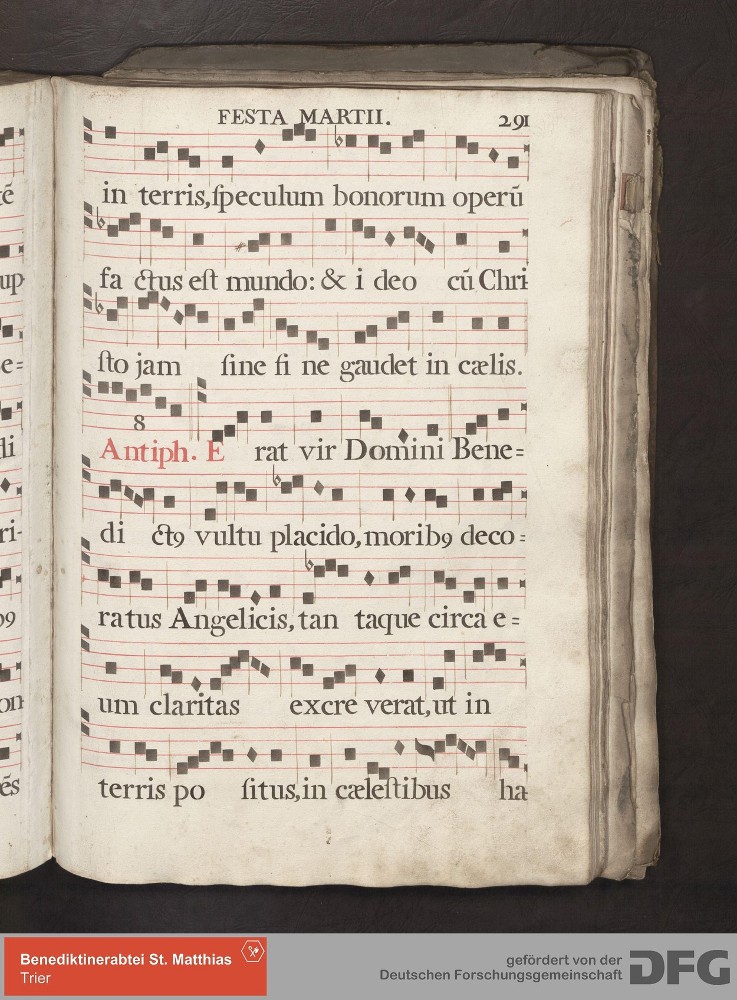 FESTA MARTII. 291
in terris, ſpeculum bonorum operũ
fa ctus eſt mundo: & i deo cũ Chri-
ſto jam ſine fi ne gaudet in cælis.
8
Antiph. E rat vir Domini Bene=
di ctꝯ vultu placido, moribꝯ deco=
ratus Angelicis, tan taque circa e=
um claritas excre verat, ut in
terris po ſitus, in cæleſtibus ha-
Benediktinerabtei St. Matthias
Trier
gefördert von der
Deutschen Forschungsgemeinschaft
DFG